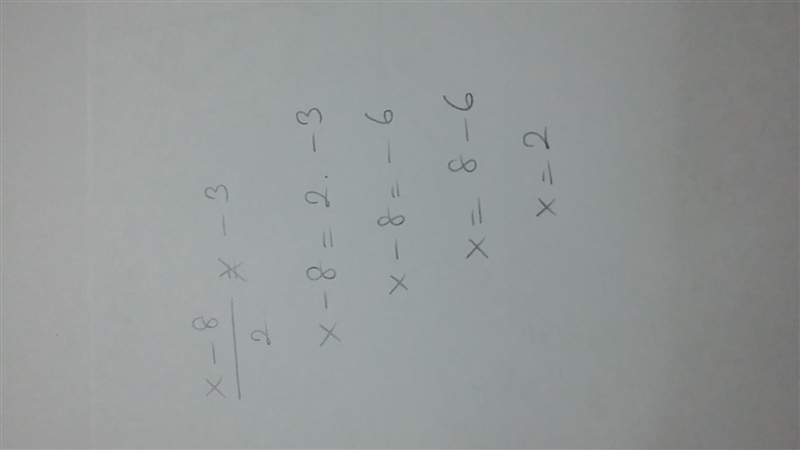 x - 8
2
x - 3
x - 8 = 2 . - 3
x - 8 = - 6
x = 8 - 6
x = 2